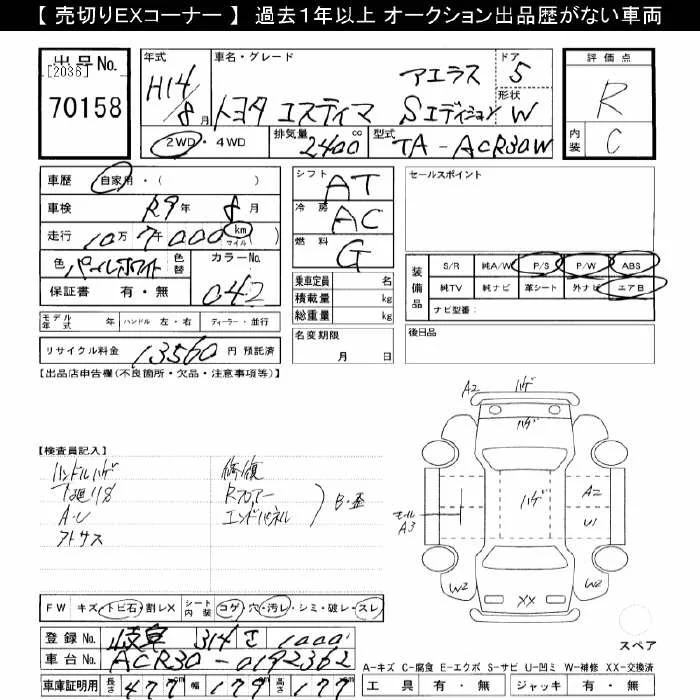 【 売切りEXコーナー 】 過去1年以上 オークション出品歴がない車両
出品No.
[2036]
70158
年式
H14/8月
車名・グレード
アエラス
トヨタ エスティマ Sエディション
ドア
5
形状
W
評価点
R
内装
C
2WD・4WD
排気量 2400 cc
型式 TA-ACR30W
車歴 自家用・( )
車検 R9年 8月
走行 10万7千000 km マイル
色 パールホワイト 色替
カラーNo. 042
保証書 有・無
シフト AT
冷房 AC
燃料 G
乗車定員 名
積載量 kg
総重量 kg
名変期限
月 日
セールスポイント
装備品
S/R 純A/W P/S P/W ABS
純TV 純ナビ 革シート 外ナビ エアB
ナビ型番:
後日品
モデル年式 年 ハンドル 左・右 ディーラー・並行
リサイクル料金 13560 円 預託済
【出品店申告欄(不良箇所・欠品・注意事項等)】
【検査員記入】
ハンドルハゲ
下廻りS
A・U
アトサス
修復
Rフロアー
エンドパネル
B・歪
A2 ハゲ
ハゲ
ハゲ
モール
A3
A2
U1
W2
W2
XX
スペア
FW キズ・トビ石・割レX シート内装 コゲ・穴・汚レ・シミ・破レ・スレ
登録No. 岐阜 314 さ 1000
車台No. ACR30-0192362
車庫証明用 長さ 477cm 幅 179cm 高さ 177cm
A-キズ C-腐食 E-エクボ S-サビ U-凹ミ W-補修 XX-交換済
工具 有・無 ジャッキ 有・無